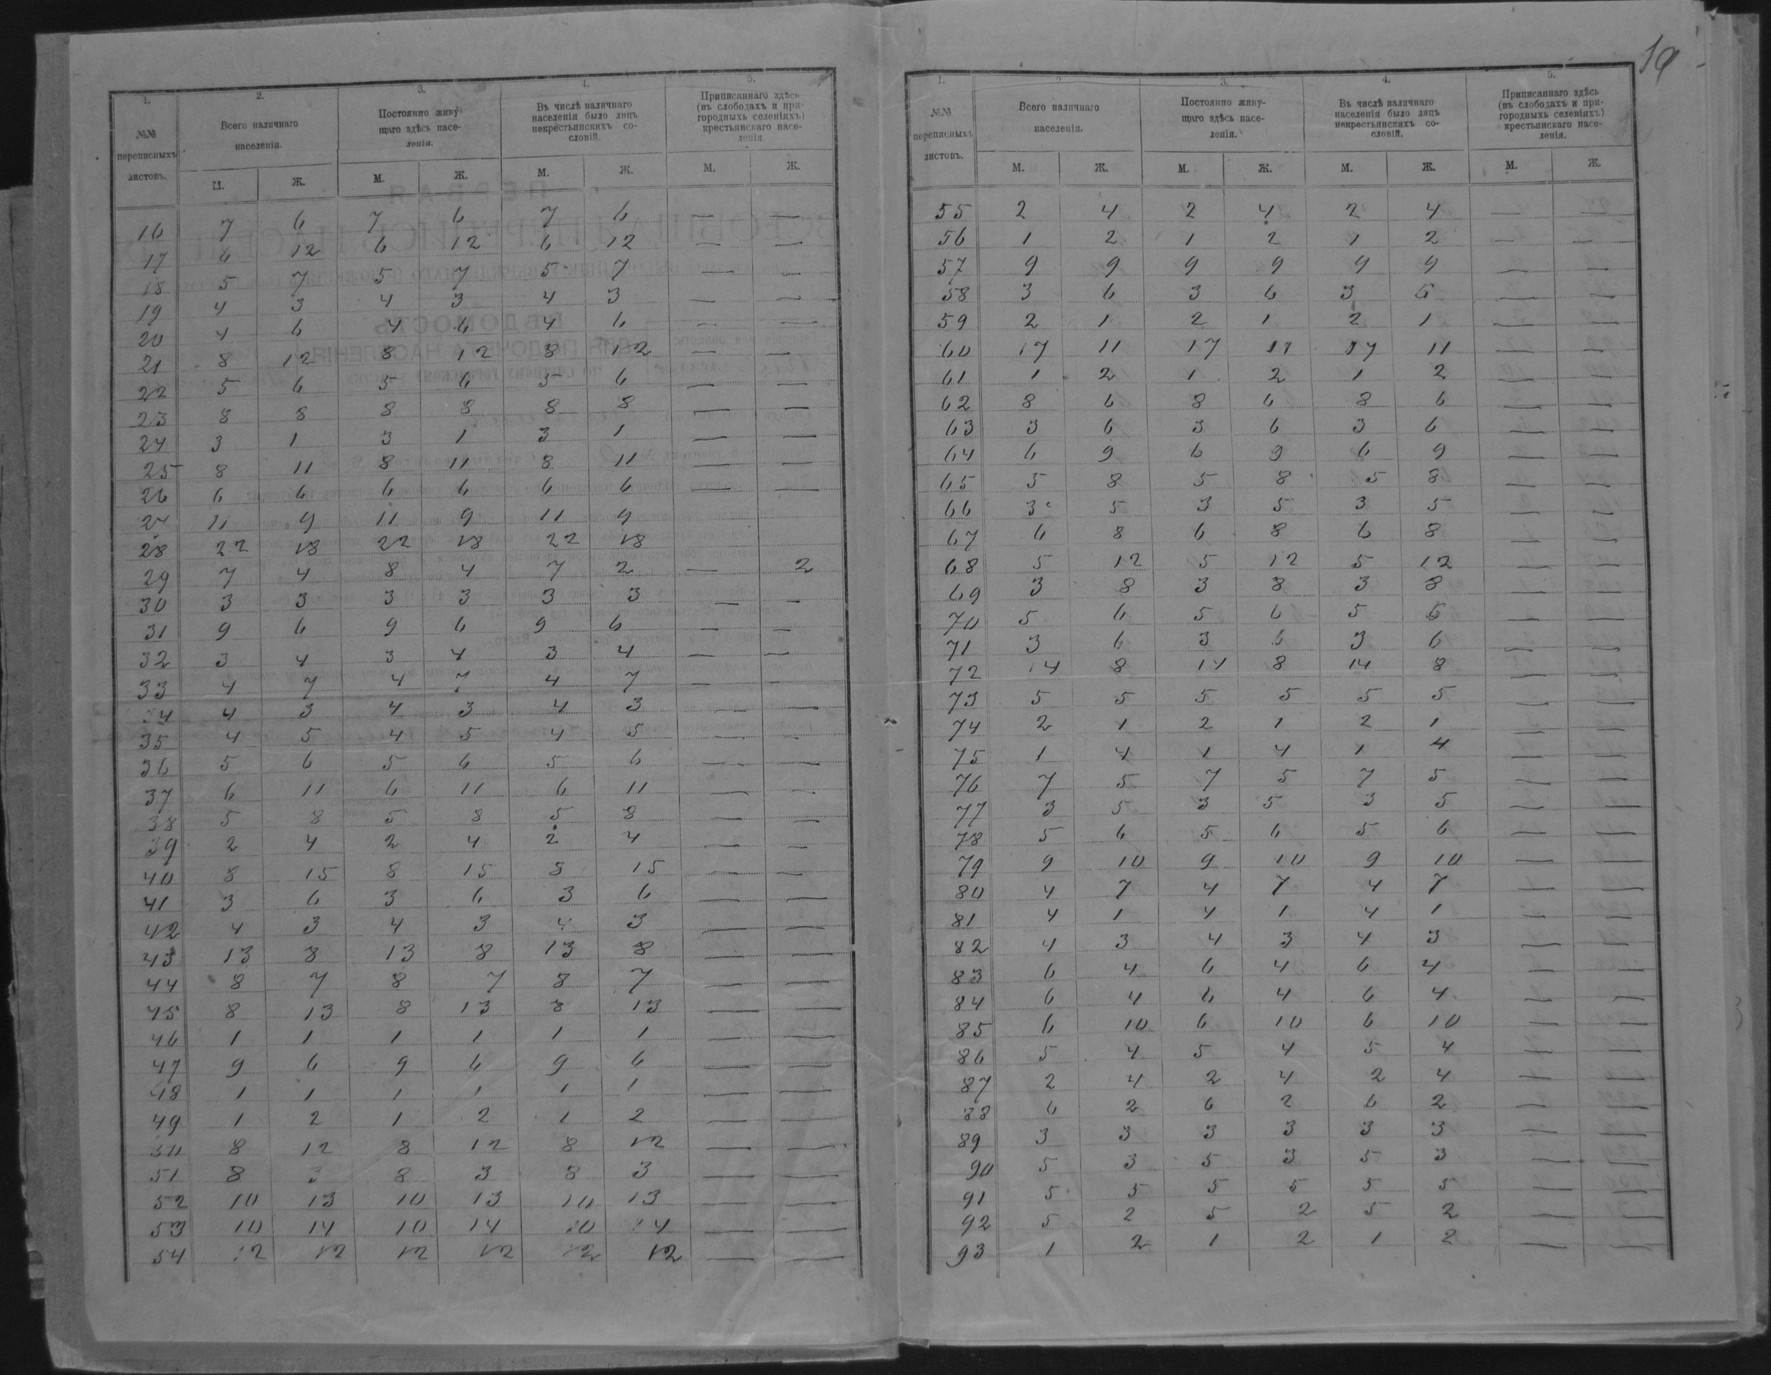 19
1. 2. 3. 4. 5.
№№ переписныхъ листовъ.
Всего наличнаго населенія.
Постоянно живу-
щаго здѣсь насе-
ленія.
Въ числѣ наличнаго
населенія было лицъ
некрестьянскихъ со-
словій.
Приписаннаго здѣсь
(въ слободахъ и при-
городныхъ селеніяхъ)
крестьянскаго насе-
ленія.
М. Ж. М. Ж. М. Ж. М. Ж.
16 7 6 7 6 7 6 — —
17 6 12 6 12 6 12 — —
18 5 7 5 7 5 7 — —
19 4 3 4 3 4 3 — —
20 4 6 4 6 4 6 — —
21 8 12 8 12 8 12 — —
22 5 6 5 6 5 6 — —
23 8 8 8 8 8 8 — —
24 3 1 3 1 3 1 — —
25 8 11 8 11 8 11 — —
26 6 6 6 6 6 6 — —
27 11 9 11 9 11 9
28 22 18 22 18 22 18
29 7 4 8 4 7 2 — 2
30 3 3 3 3 3 3 — —
31 9 6 9 6 9 6 — —
32 3 4 3 4 3 4 — —
33 4 7 4 7 4 7 — —
34 4 3 4 3 4 3 — —
35 4 5 4 5 4 5 — —
36 5 6 5 6 5 6 — —
37 6 11 6 11 6 11 — —
38 5 8 5 8 5 8 — —
39 2 4 2 4 2 4 — —
40 8 15 8 15 8 15 — —
41 3 6 3 6 3 6 — —
42 4 3 4 3 4 3 — —
43 13 8 13 8 13 8 — —
44 8 7 8 7 8 7 — —
45 8 13 8 13 8 13 — —
46 1 1 1 1 1 1 — —
47 9 6 9 6 9 6 — —
48 1 1 1 1 1 1 — —
49 1 2 1 2 1 2 — —
50 8 12 8 12 8 12 — —
51 8 3 8 3 8 3 — —
52 10 13 10 13 10 13 — —
53 10 14 10 14 10 14 — —
54 12 12 12 12 12 12 — —
1. 2. 3. 4. 5.
№№ переписныхъ листовъ.
Всего наличнаго населенія.
Постоянно живу-
щаго здѣсь насе-
ленія.
Въ числѣ наличнаго
населенія было лицъ
некрестьянскихъ со-
словій.
Приписаннаго здѣсь
(въ слободахъ и при-
городныхъ селеніяхъ)
крестьянскаго насе-
ленія.
М. Ж. М. Ж. М. Ж. М. Ж.
55 2 4 2 4 2 4 — —
56 1 2 1 2 1 2 — —
57 9 9 9 9 9 9 — —
58 3 6 3 6 3 6 — —
59 2 1 2 1 2 1 — —
60 17 11 17 11 17 11 — —
61 1 2 1 2 1 2 — —
62 8 6 8 6 8 6 — —
63 3 6 3 6 3 6 — —
64 6 9 6 9 6 9 — —
65 5 8 5 8 5 8 — —
66 3 5 3 5 3 5 — —
67 6 8 6 8 6 8 — —
68 5 12 5 12 5 12 — —
69 3 8 3 8 3 8 — —
70 5 6 5 6 5 6 — —
71 3 6 3 6 3 6 — —
72 14 8 14 8 14 8 — —
73 5 5 5 5 5 5 — —
74 2 1 2 1 2 1 — —
75 1 4 1 4 1 4 — —
76 7 5 7 5 7 5 — —
77 3 5 3 5 3 5 — —
78 5 6 5 6 5 6 — —
79 9 10 9 10 9 10 — —
80 4 7 4 7 4 7 — —
81 4 1 4 1 4 1 — —
82 4 3 4 3 4 3 — —
83 6 4 6 4 6 4 — —
84 6 4 6 4 6 4 — —
85 6 10 6 10 6 10 — —
86 5 4 5 4 5 4 — —
87 2 4 2 4 2 4 — —
88 6 2 6 2 6 2 — —
89 3 3 3 3 3 3 — —
90 5 3 5 3 5 3 — —
91 5 5 5 5 5 5 — —
92 5 2 5 2 5 2 — —
93 1 2 1 2 1 2 — —